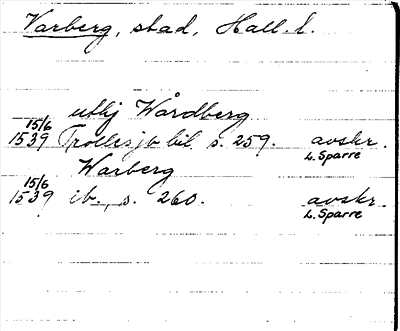 Varberg, stad, Hall. l.
utlj Wårdberg
15/6
1539 Trolles jb bil s. 259. avskr.
L. Sparre
Warberg
15/6
1539 ib., s. 260. avskr.
L. Sparre